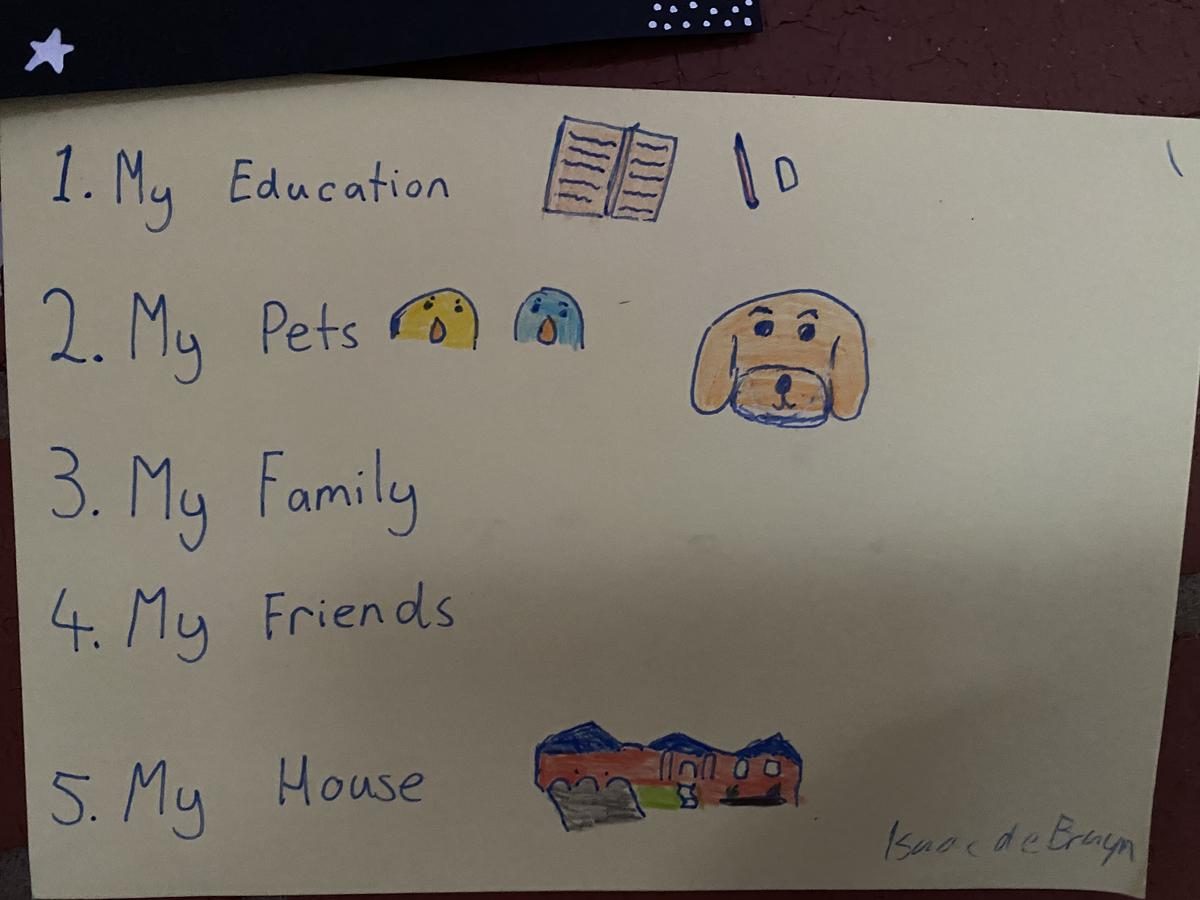 1. My Education
2. My Pets
3. My Family
4. My Friends
5. My House
Isaac de Bruyn